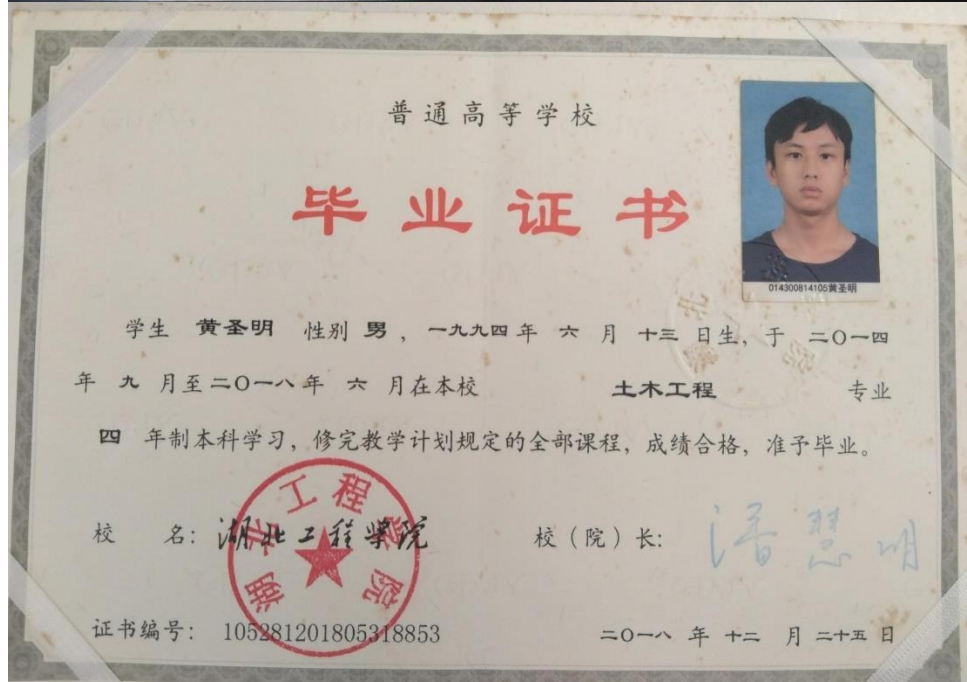 普通高等学校
毕业证书
014300814105黄圣明
学生 黄圣明 性别 男 ，一九九四 年 六 月 十三 日生，于 二〇一四
年 九 月至 二〇一八 年 六 月在本校 土木工程 专业
四 年制本科学习，修完教学计划规定的全部课程，成绩合格，准予毕业。
校 名：湖北工程学院 校（院）长：潘慧明
湖北工程学院
证书编号： 105281201805318853 二〇一八 年 十二 月 二十五 日